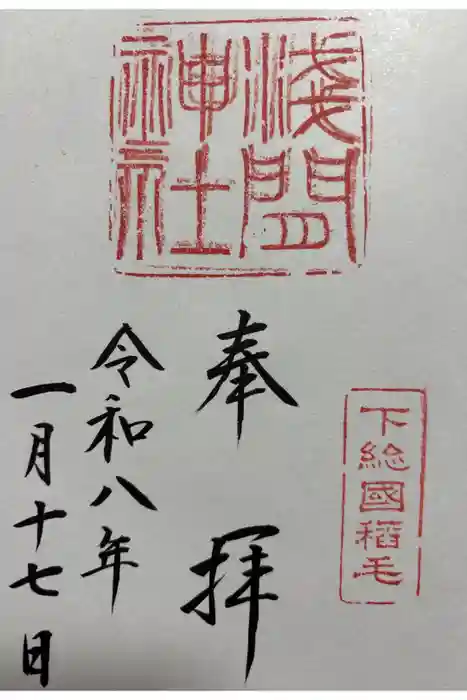 下総國稻毛
淺間
神社
奉拝
令和八年
一月十七日